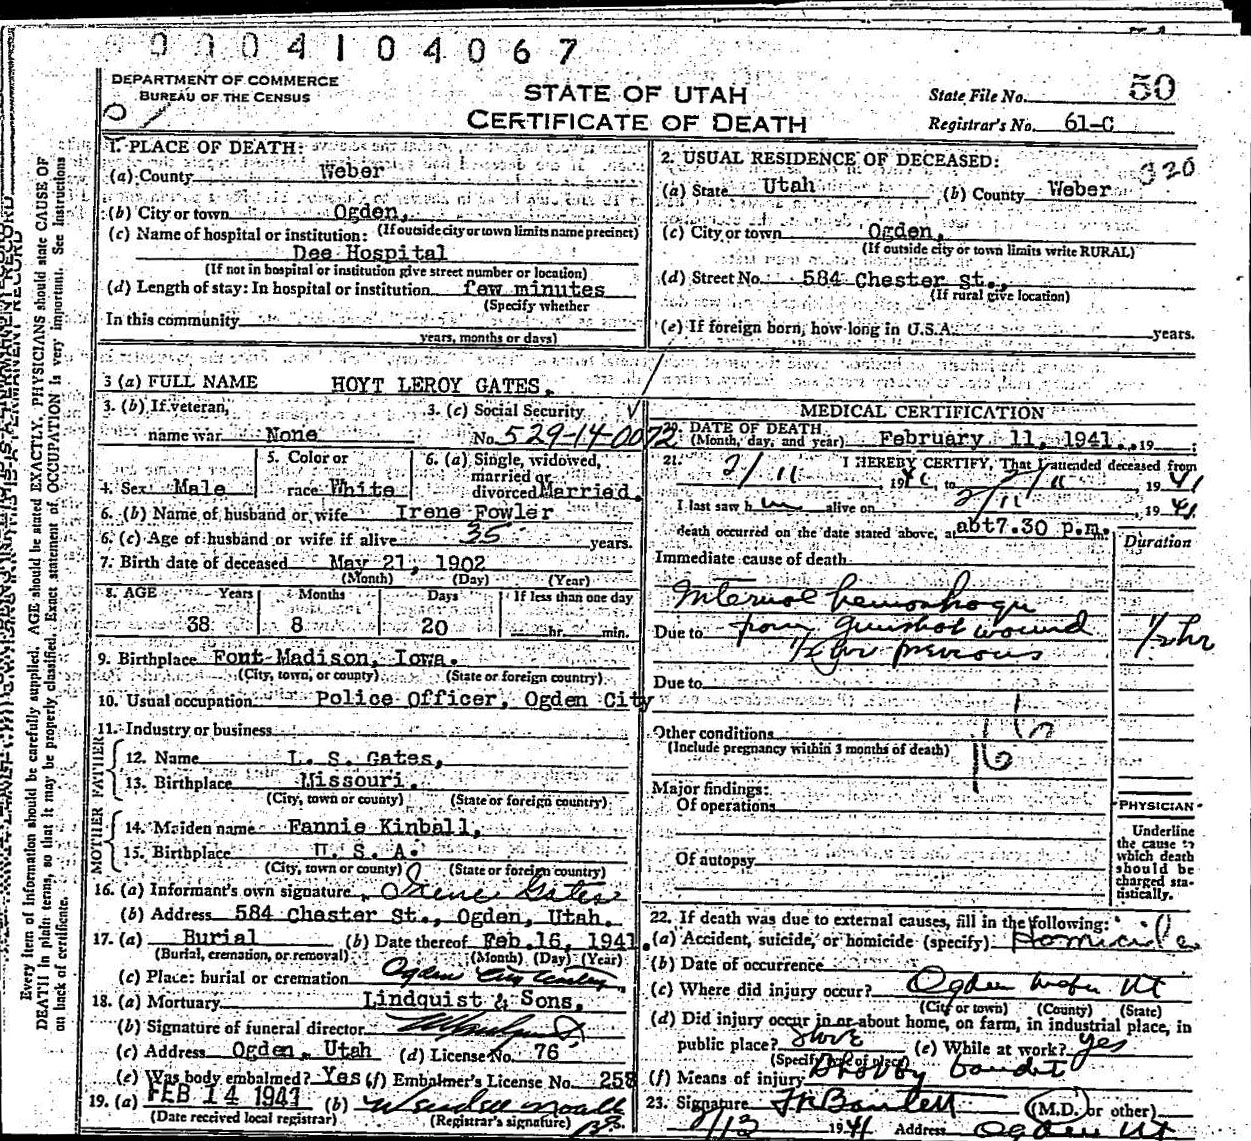 00004104067
DEPARTMENT OF COMMERCE
BUREAU OF THE CENSUS
STATE OF UTAH
CERTIFICATE OF DEATH
State File No. 50
Registrar's No. 61-C
Every item of information should be carefully supplied. AGE should be stated EXACTLY. PHYSICIANS should state CAUSE OF
DEATH in plain terms, so that it may be properly classified. Exact statement of OCCUPATION is very important. See instructions
on back of certificate.
1. PLACE OF DEATH:
(a) County Weber
(b) City or town Ogden,
(If outside city or town limits name precinct)
(c) Name of hospital or institution:
Dee Hospital
(If not in hospital or institution give street number or location)
(d) Length of stay: In hospital or institution few minutes
(Specify whether
In this community
years, months or days)
2. USUAL RESIDENCE OF DECEASED:
(a) State Utah (b) County Weber
(c) City or town Ogden,
(If outside city or town limits write RURAL)
(d) Street No. 584 Chester St.,
(If rural give location)
(e) If foreign born, how long in U.S.A. years.
3 (a) FULL NAME HOYT LEROY GATES,
3. (b) If veteran,
name war None
3. (c) Social Security
No. 529-14-0072
4. Sex Male
5. Color or
race White
6. (a) Single, widowed,
married or
divorced Married.
6. (b) Name of husband or wife Irene Fowler
6. (c) Age of husband or wife if alive 35 years.
7. Birth date of deceased May 21, 1902
(Month) (Day) (Year)
8. AGE Years Months Days If less than one day
38 8 20 hr. min.
9. Birthplace Font Madison, Iowa.
(City, town, or county) (State or foreign country)
10. Usual occupation Police Officer, Ogden City
11. Industry or business
FATHER
12. Name L. S. Gates,
13. Birthplace Missouri.
(City, town or county) (State or foreign country)
MOTHER
14. Maiden name Fannie Kinball,
15. Birthplace U. S. A.
(City, town or county) (State or foreign country)
16. (a) Informant's own signature Irene Gates
(b) Address 584 Chester St., Ogden, Utah.
17. (a) Burial (b) Date thereof Feb. 16, 1941.
(Burial, cremation, or removal) (Month) (Day) (Year)
(c) Place: burial or cremation Ogden City Cemetery
18. (a) Mortuary Lindquist & Sons.
(b) Signature of funeral director
(c) Address Ogden, Utah (d) License No. 76
(e) Was body embalmed? Yes (f) Embalmer's License No. 258
19. (a) FEB 14 1941 (b)
(Date received local registrar) (Registrar's signature)
MEDICAL CERTIFICATION
20. DATE OF DEATH
(Month, day, and year) February 11, 1941. , 19 ;
21. I HEREBY CERTIFY, That I attended deceased from
2/11 , 1941 to 2/11 , 1941
I last saw him alive on 2/11 , 1941
death occurred on the date stated above, at abt7.30 p.m. m.
Duration
Immediate cause of death
Internal hemorrhage
Due to from gunshot wound 1/2 hr
1/2 hr previous
Due to
Other conditions
(Include pregnancy within 3 months of death)
Major findings:
Of operations
Of autopsy
PHYSICIAN
Underline
the cause to
which death
should be
charged sta-
tistically.
22. If death was due to external causes, fill in the following:
(a) Accident, suicide, or homicide (specify) Homicide
(b) Date of occurrence
(c) Where did injury occur? Ogden Weber Ut
(City or town) (County) (State)
(d) Did injury occur in or about home, on farm, in industrial place, in
public place? Store (e) While at work? yes
(Specify type of place)
(f) Means of injury Shot by bandit
23. Signature (M.D. or other)
2/13 1941 Address Ogden Ut